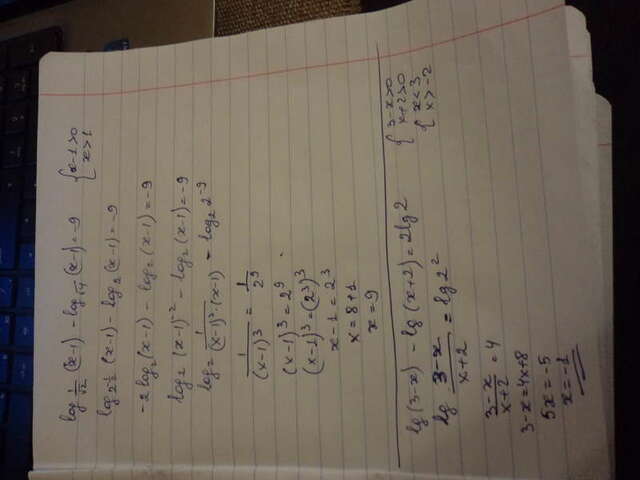 log 1/√2 (x-1) - log √4 (x-1) = -9 {x-1>0
x>1
log 2^-1/2 (x-1) - log 2 (x-1) = -9
-2 log₂ (x-1) - log₂ (x-1) = -9
log₂ (x-1)^-2 - log₂ (x-1) = -9
log₂ 1/((x-1)²·(x-1)) = log₂ 2^-9
1/(x-1)³ = 1/2⁹
(x-1)³ = 2⁹
(x-1)³ = (2³)³
x-1 = 2³
x = 8+1
x = 9
lg (3-x) - lg (x+2) = 2lg2 {3-x>0
x+2>0
lg (3-x)/(x+2) = lg2² {x<3
x>-2
(3-x)/(x+2) = 4
3-x = 4x+8
5x = -5
x = -1